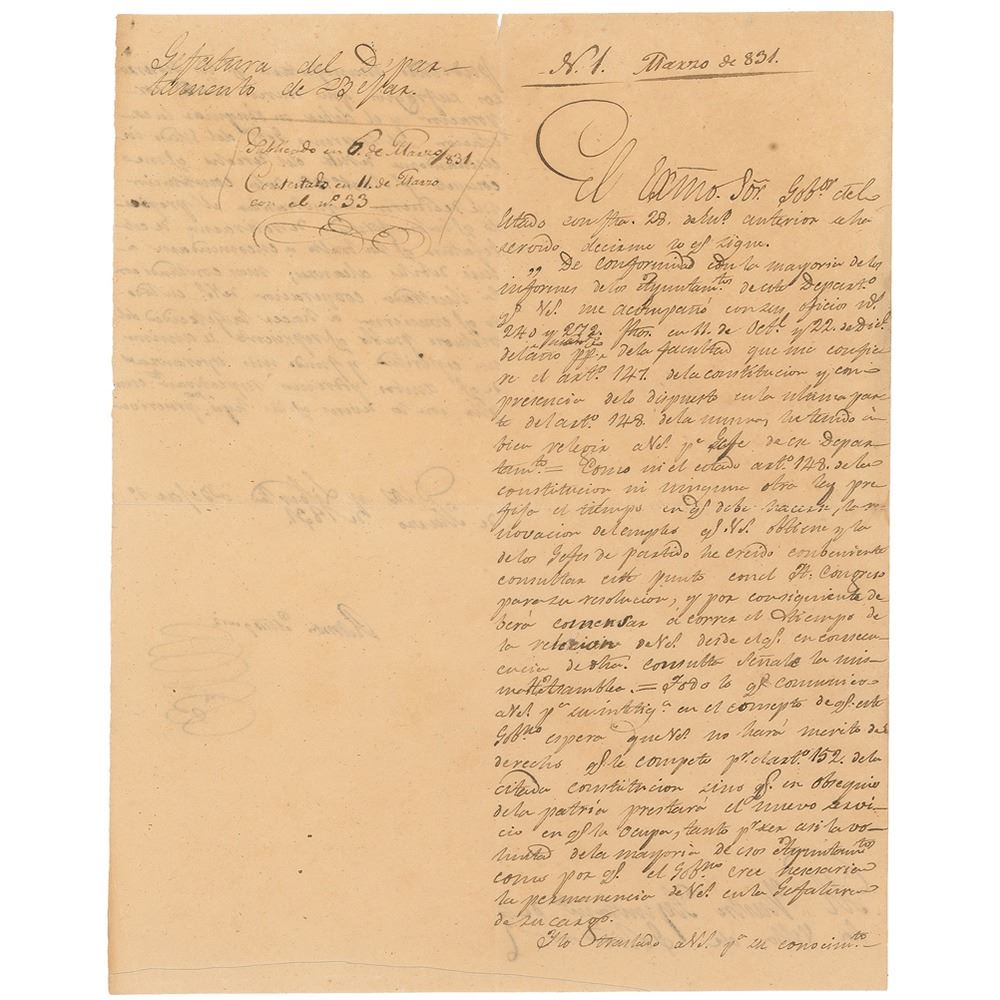 Gefatura del Depar-
tamento de Bexar.
Publicado en 6. de Marzo/831.
Contestado en 11. de Marzo
con el nº 33
N. 1. Marzo de 831.
El Exmo. Sõr. Gobor. del
Estado con fha. 28. de anterior se ha
servido decirme lo q̃. sigue.
„ De conformidad con la mayoria de los
informes de los Ayuntamtos. de este Departo.
q̃. Vd. me acompañó con sus oficios nos.
240 y 272. fhos. en 11. de Octe. y 22. de Dice.
del año pp. de la facultad que me confie-
re el arto. 147. de la constitucion y con
presencia de lo dispuesto en la ultima par-
te del arto. 148. de la misma, he tenido á
bien relegir a Vd. pa. Gefe de ese Depar-
tamto. = Como ni el citado arto. 148. de la
constitucion ni ninguna otra ley pre-
fija el tiempo en q̃. debe hacerse, la re-
novacion del empleo q̃. Vd. obtiene y la
de los Gefes de partido he creido conbeniente
consultar este punto con el H. Congreso
para su resolucion, y por consiguiente de-
berá comensar á correr el tiempo de
la relecion de Vd. desde el q̃. en consecu-
encia de dha. consulta señale la mis-
ma H. Asamblea. = Todo lo q̃. comunico
a Vd. pa. su intliga. en el concepto de q̃. este
Gobno. espera que Vd. no hará merito del
derecho q̃. le compete pr. el arto. 152. de la
citada constitucion sino q̃. en obsequio
de la patria prestará el nuevo servi-
cio en q̃. la ocupa, tanto pr. ser asi la vo-
luntad de la mayoria de esos Ayuntamtos.
como por q̃. el Gobno. cree nesesaria
la permanencia de Vd. en la Gefatura
de su cargo.
Y lo traslado a Vd. pa. su conocimto.